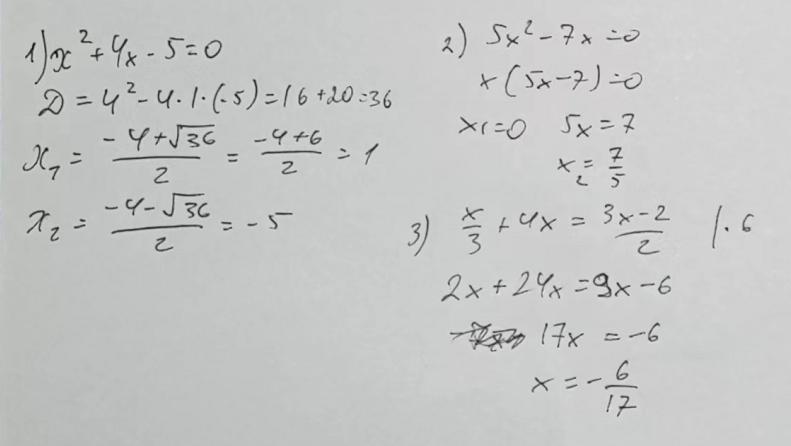 1) x² + 4x - 5 = 0
D = 4² - 4 · 1 · (-5) = 16 + 20 = 36
x₁ = (-4 + √36)/2 = (-4 + 6)/2 = 1
x₂ = (-4 - √36)/2 = -5
2) 5x² - 7x = 0
x(5x - 7) = 0
x₁ = 0 5x = 7
x₂ = 7/5
3) x/3 + 4x = (3x - 2)/2 | · 6
2x + 24x = 9x - 6
17x = -6
x = -6/17